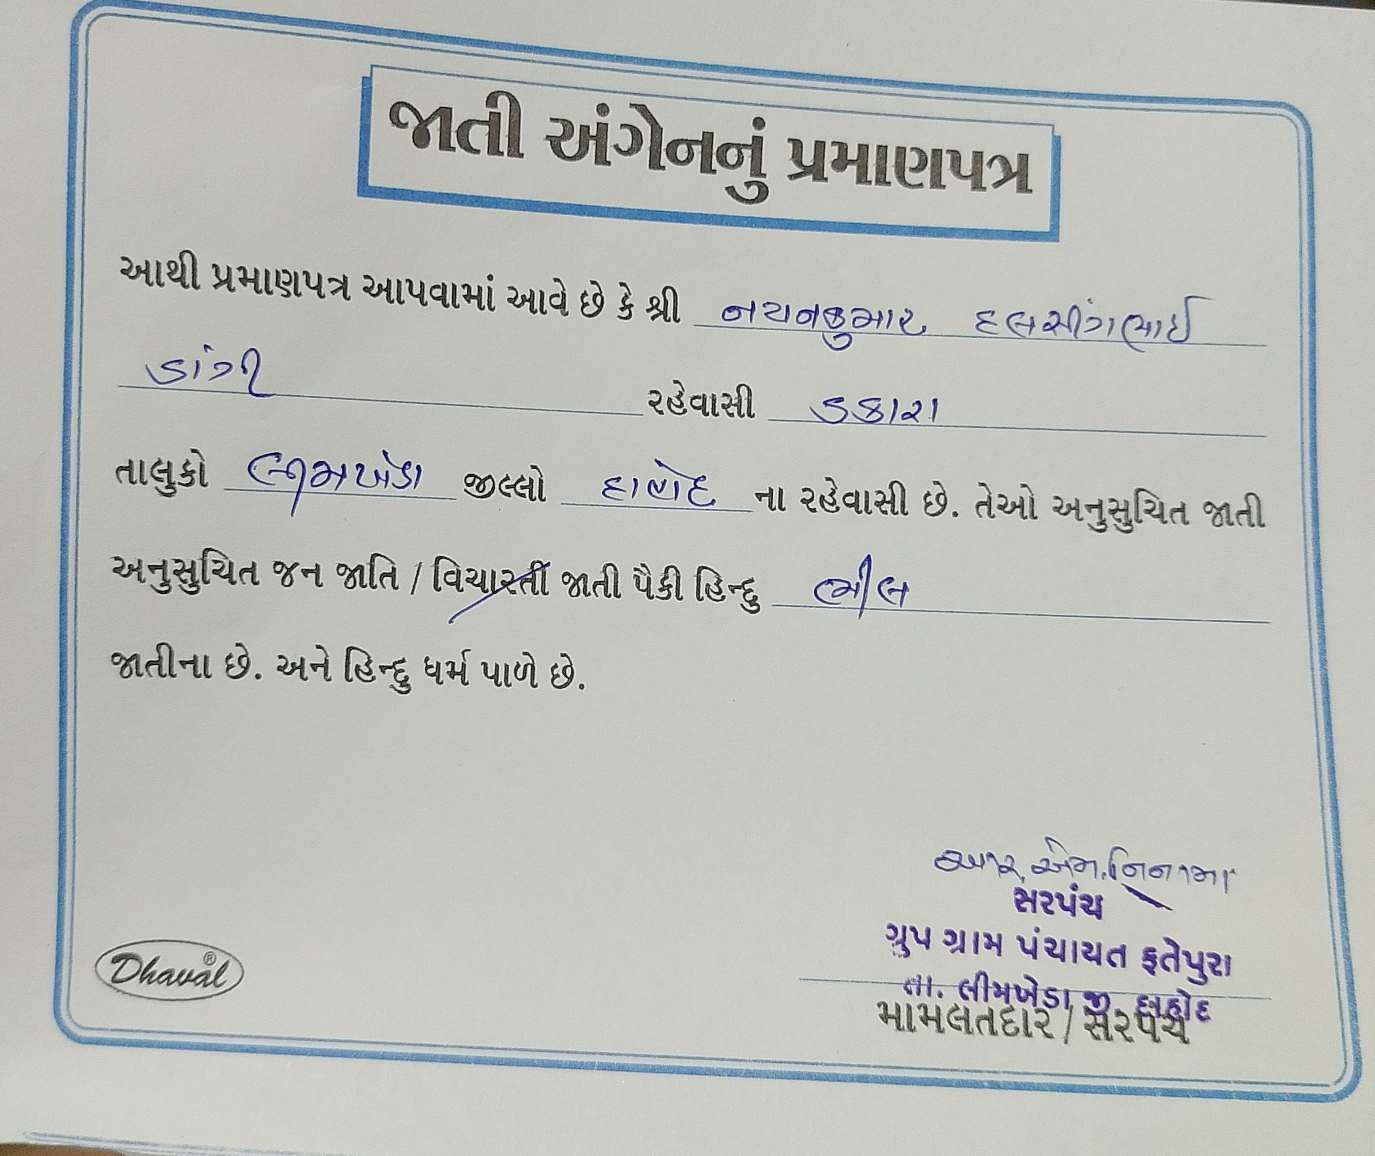 જાતી અંગેનનું પ્રમાણપત્ર
આથી પ્રમાણપત્ર આપવામાં આવે છે કે શ્રી નયનકુમાર દલસીંગભાઈ
ડાંગી રહેવાસી ડકારા
તાલુકો લીમખેડા જીલ્લો દાહોદ ના રહેવાસી છે. તેઓ અનુસુચિત જાતી
અનુસુચિત જન જાતિ / વિચારતી જાતી પૈકી હિન્દુ ભીલ
જાતીના છે. અને હિન્દુ ધર્મ પાળે છે.
આર. એમ. નિનામા
સરપંચ
ગ્રુપ ગ્રામ પંચાયત ફતેપુરા
તા. લીમખેડા, જી. દાહોદ
મામલતદાર / સરપંચ
Dhaval®